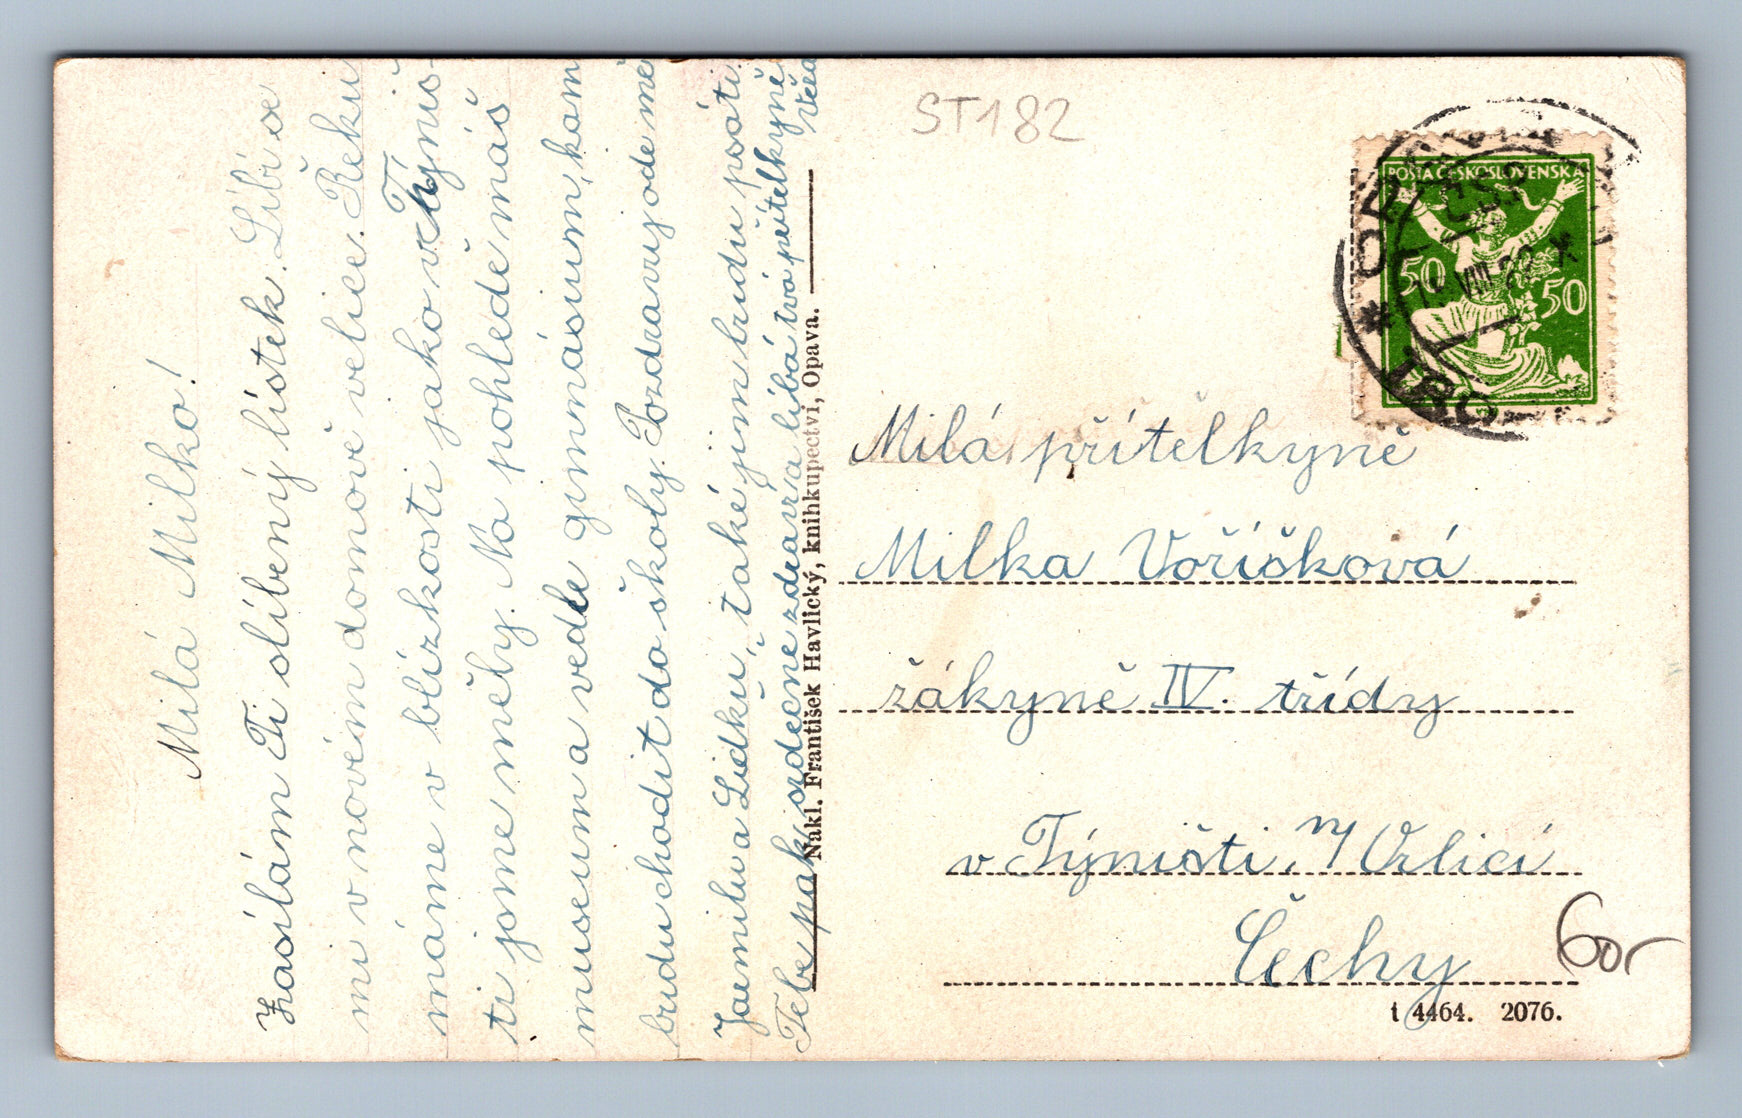 Milá Milko!
Zasílám Ti slíbený lístek. Líbí se
mi v novém domově velice. Řeku
máme v blízkosti jako v Týniš-
ti jsme měly. Na pohledě máš
museum a vedle gimnásium, kam
budu chodit do školy. Pozdravuj ode mě
Jarmilu a Lidku, také jim budu psáti.
Tebe pak srdečně zdraví a líbá tvá přítelkyně
Věra
Nakl. František Havlický, knihkupectví, Opava.
ST182
POŠTA ČESKOSLOVENSKÁ
50 50
VIII. 22
Milá přítelkyně
Milka Voříšková
žákyně IV. třídy
v Týništi, n/ Orlicí
Čechy
60,-
t 4464. 2076.